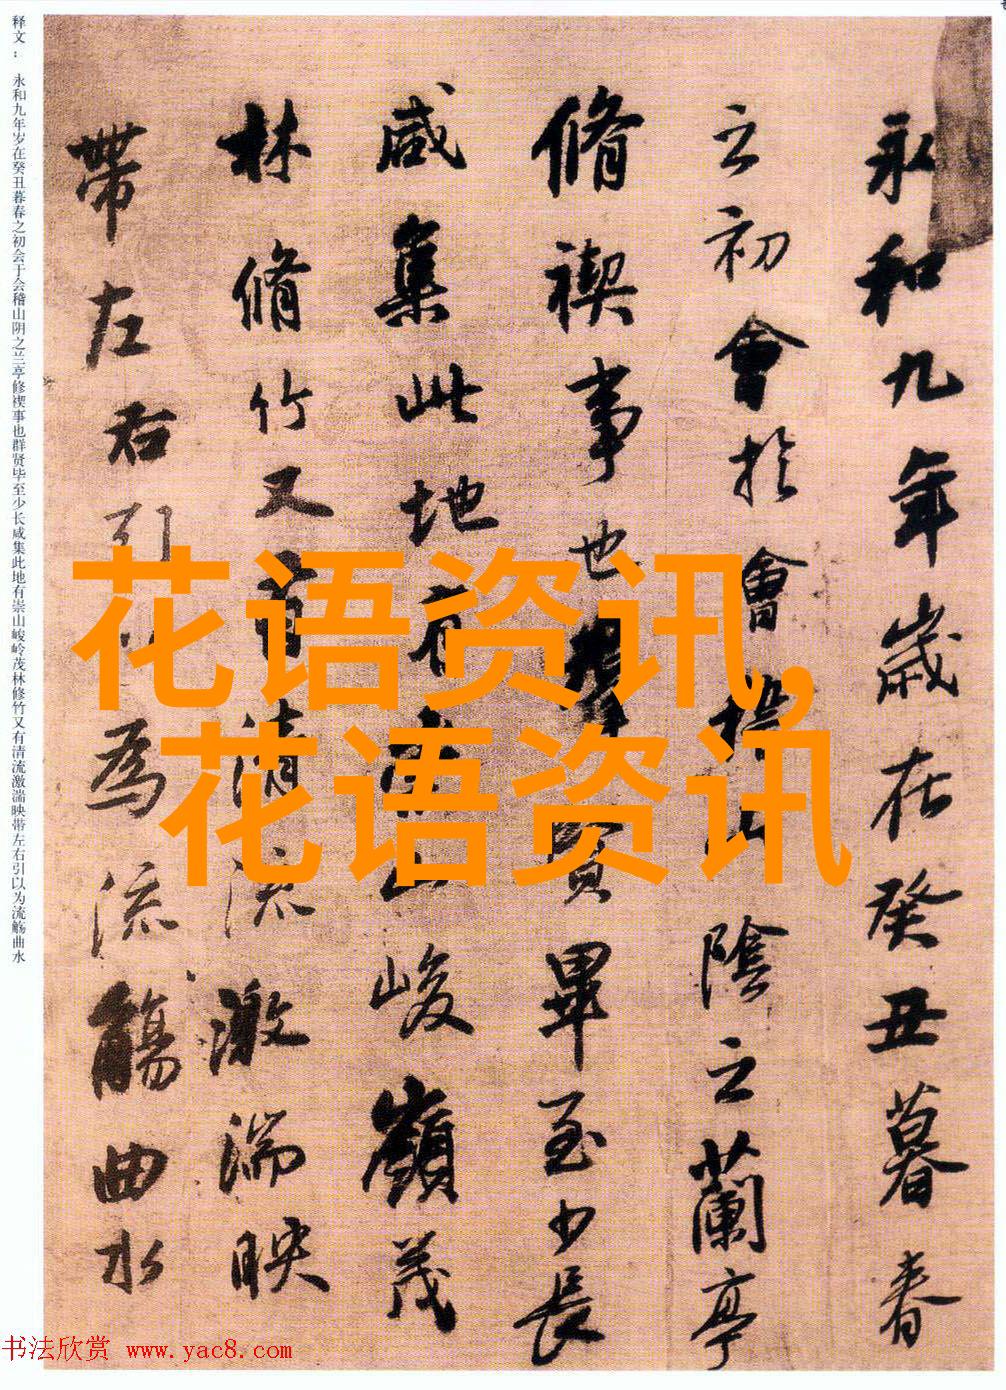 永和九年歲在癸丑暮春
之初會於會稽山陰之蘭亭
脩禊事也羣賢畢至少長
咸集此地有崇山峻嶺茂
林脩竹又有清流激湍映
帶左右引以為流觴曲水
释文： 永和九年岁在癸丑暮春之初会于会稽山阴之兰亭修禊事也群贤毕至少长咸集此地有崇山峻岭茂林修竹又有清流激湍映带左右引以为流觞曲水
花语资讯,
花语资讯
书法欣赏 www.yac8.com